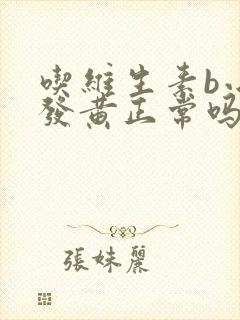 喫維生素b
發黃正常吗
張妹麗